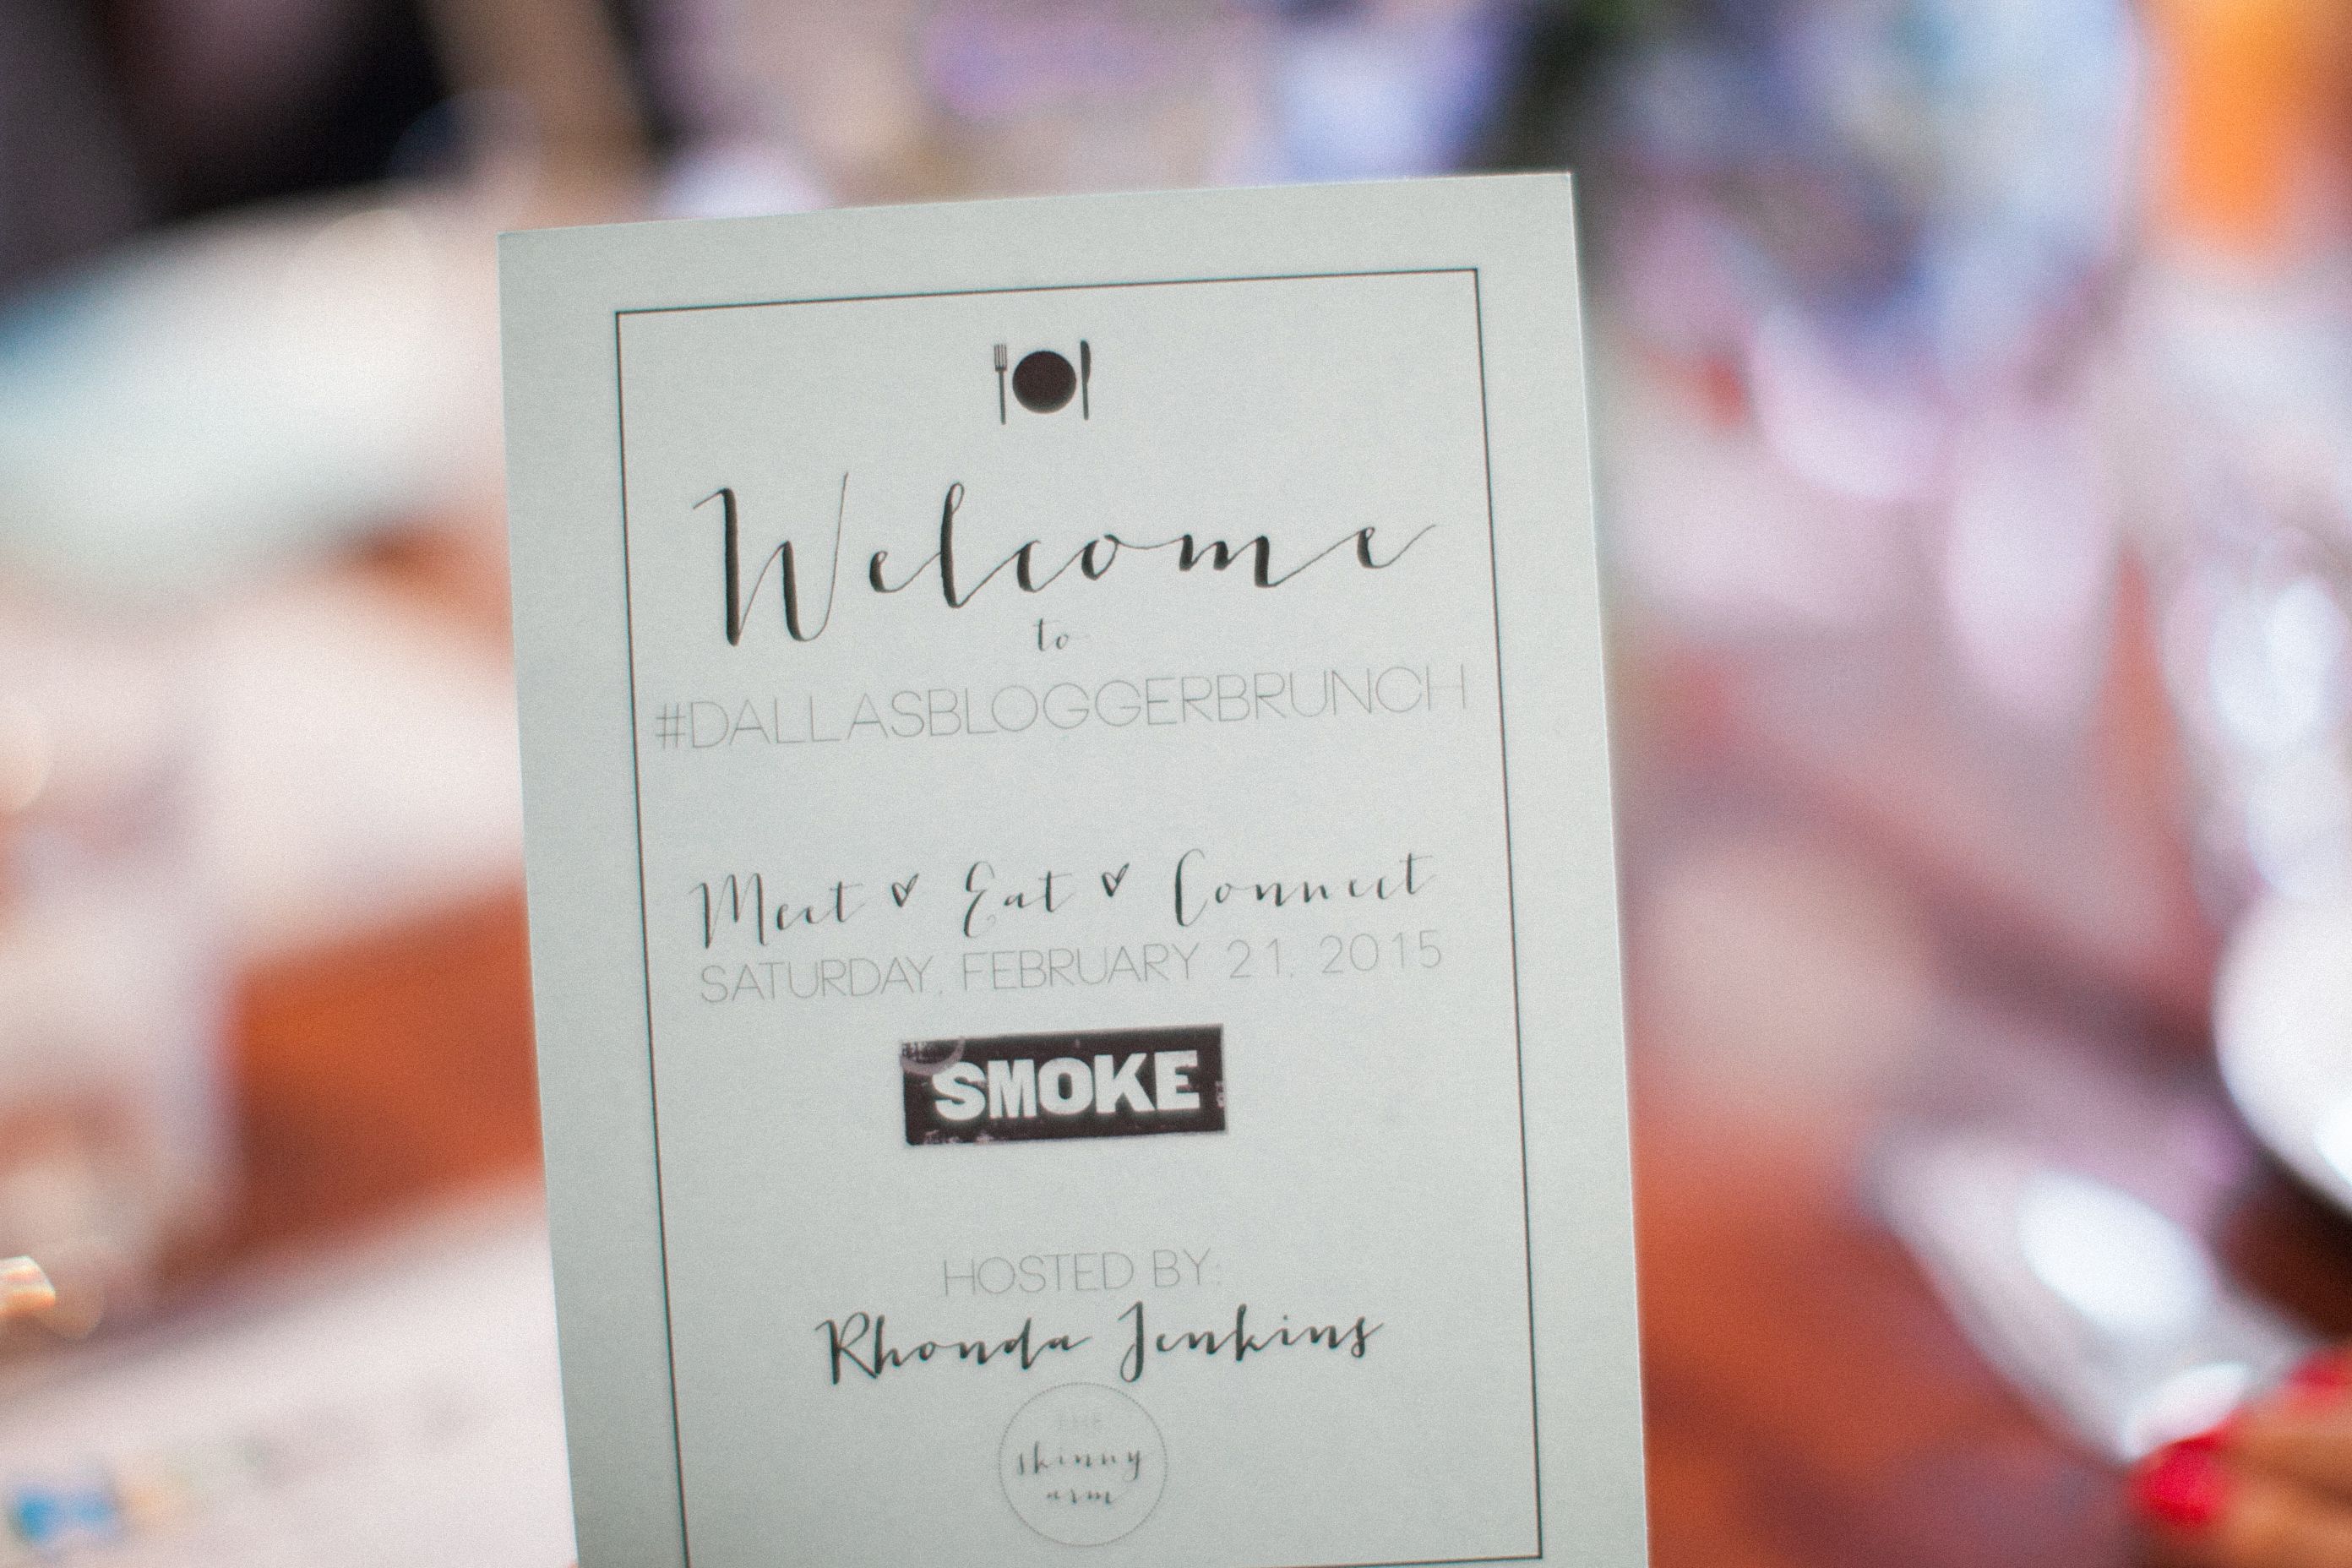 Welcome
to
#DALLASBLOGGERBRUNCH
Meet ♥ Eat ♥ Connect
SATURDAY, FEBRUARY 21, 2015
SMOKE
HOSTED BY:
Rhonda Jenkins
THE
skinny
arm